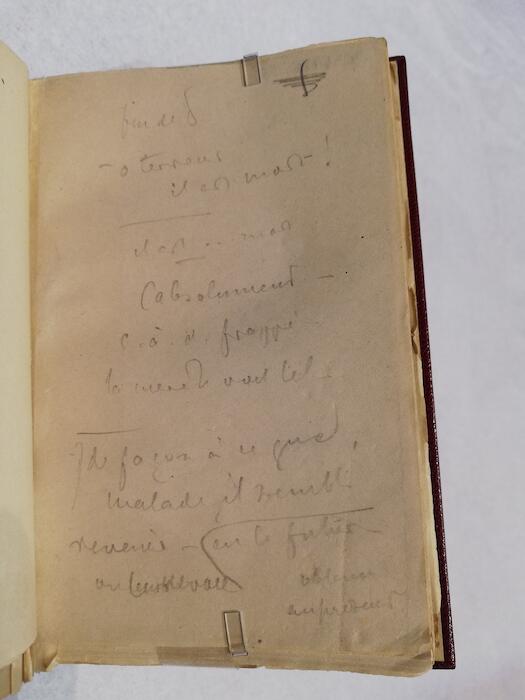 fin de 5
— o terreur
il est mort — !
il est .. mort
(absolument —
c. à. d. frappé
la mère le voit tel —
) de façon à ce que,
malade, il semble
revenir — (en le futur —
obtenu
au présent)